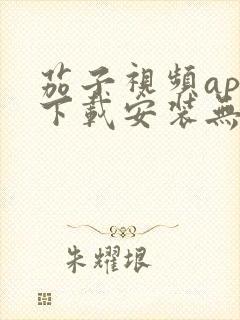 茄子視頻ap
下載安装無
朱耀垠